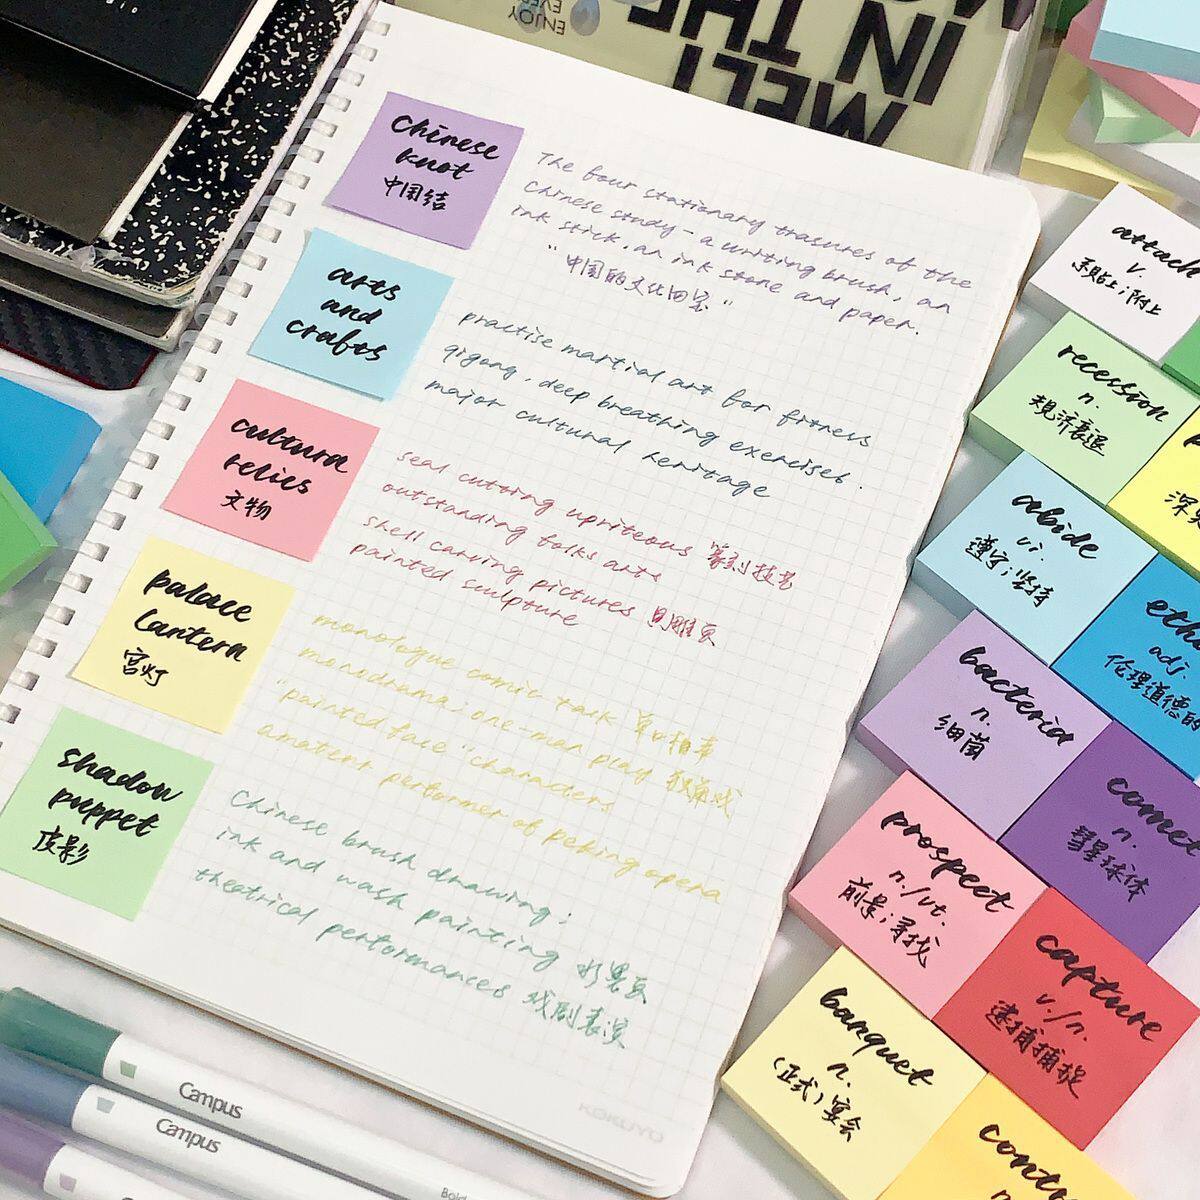 Chinese
knot
中国结
The four stationary trasures of the
Chinese study - a writing brush, an
ink stick, an ink stone and paper.
"中国的文化四宝"
arts
and
crafts
practise martial art for fitness
qigong, deep breathing exercises.
major cultural heritage
cultura
relics
文物
seal cutting upriteous 篆刻技艺
outstanding folks arts
shell carving pictures
painted sculpture
palace
lantern
宫灯
monologue comic talk 单口相声
monodrama; one-man play 独角戏
"painted face" characters
amateur performer of peking opera
shadow
puppet
皮影
Chinese brush drawing;
ink and wash painting 水墨画
theatrical performances 戏剧表演
KOKUYO
MELT
IN THE
ENJOY
attach
v.
系贴上;附上
recession
n.
衰退
深
abide
vi.
遵守;坚持
eth
adj.
伦理道德的
bacteria
n.
细菌
comet
n.
彗星球体
prospect
n./vt.
前景;寻找
capture
v./n.
逮捕捕捉
banquet
n.
(正式)宴会
cont
Campus
Campus
Bold
Ca